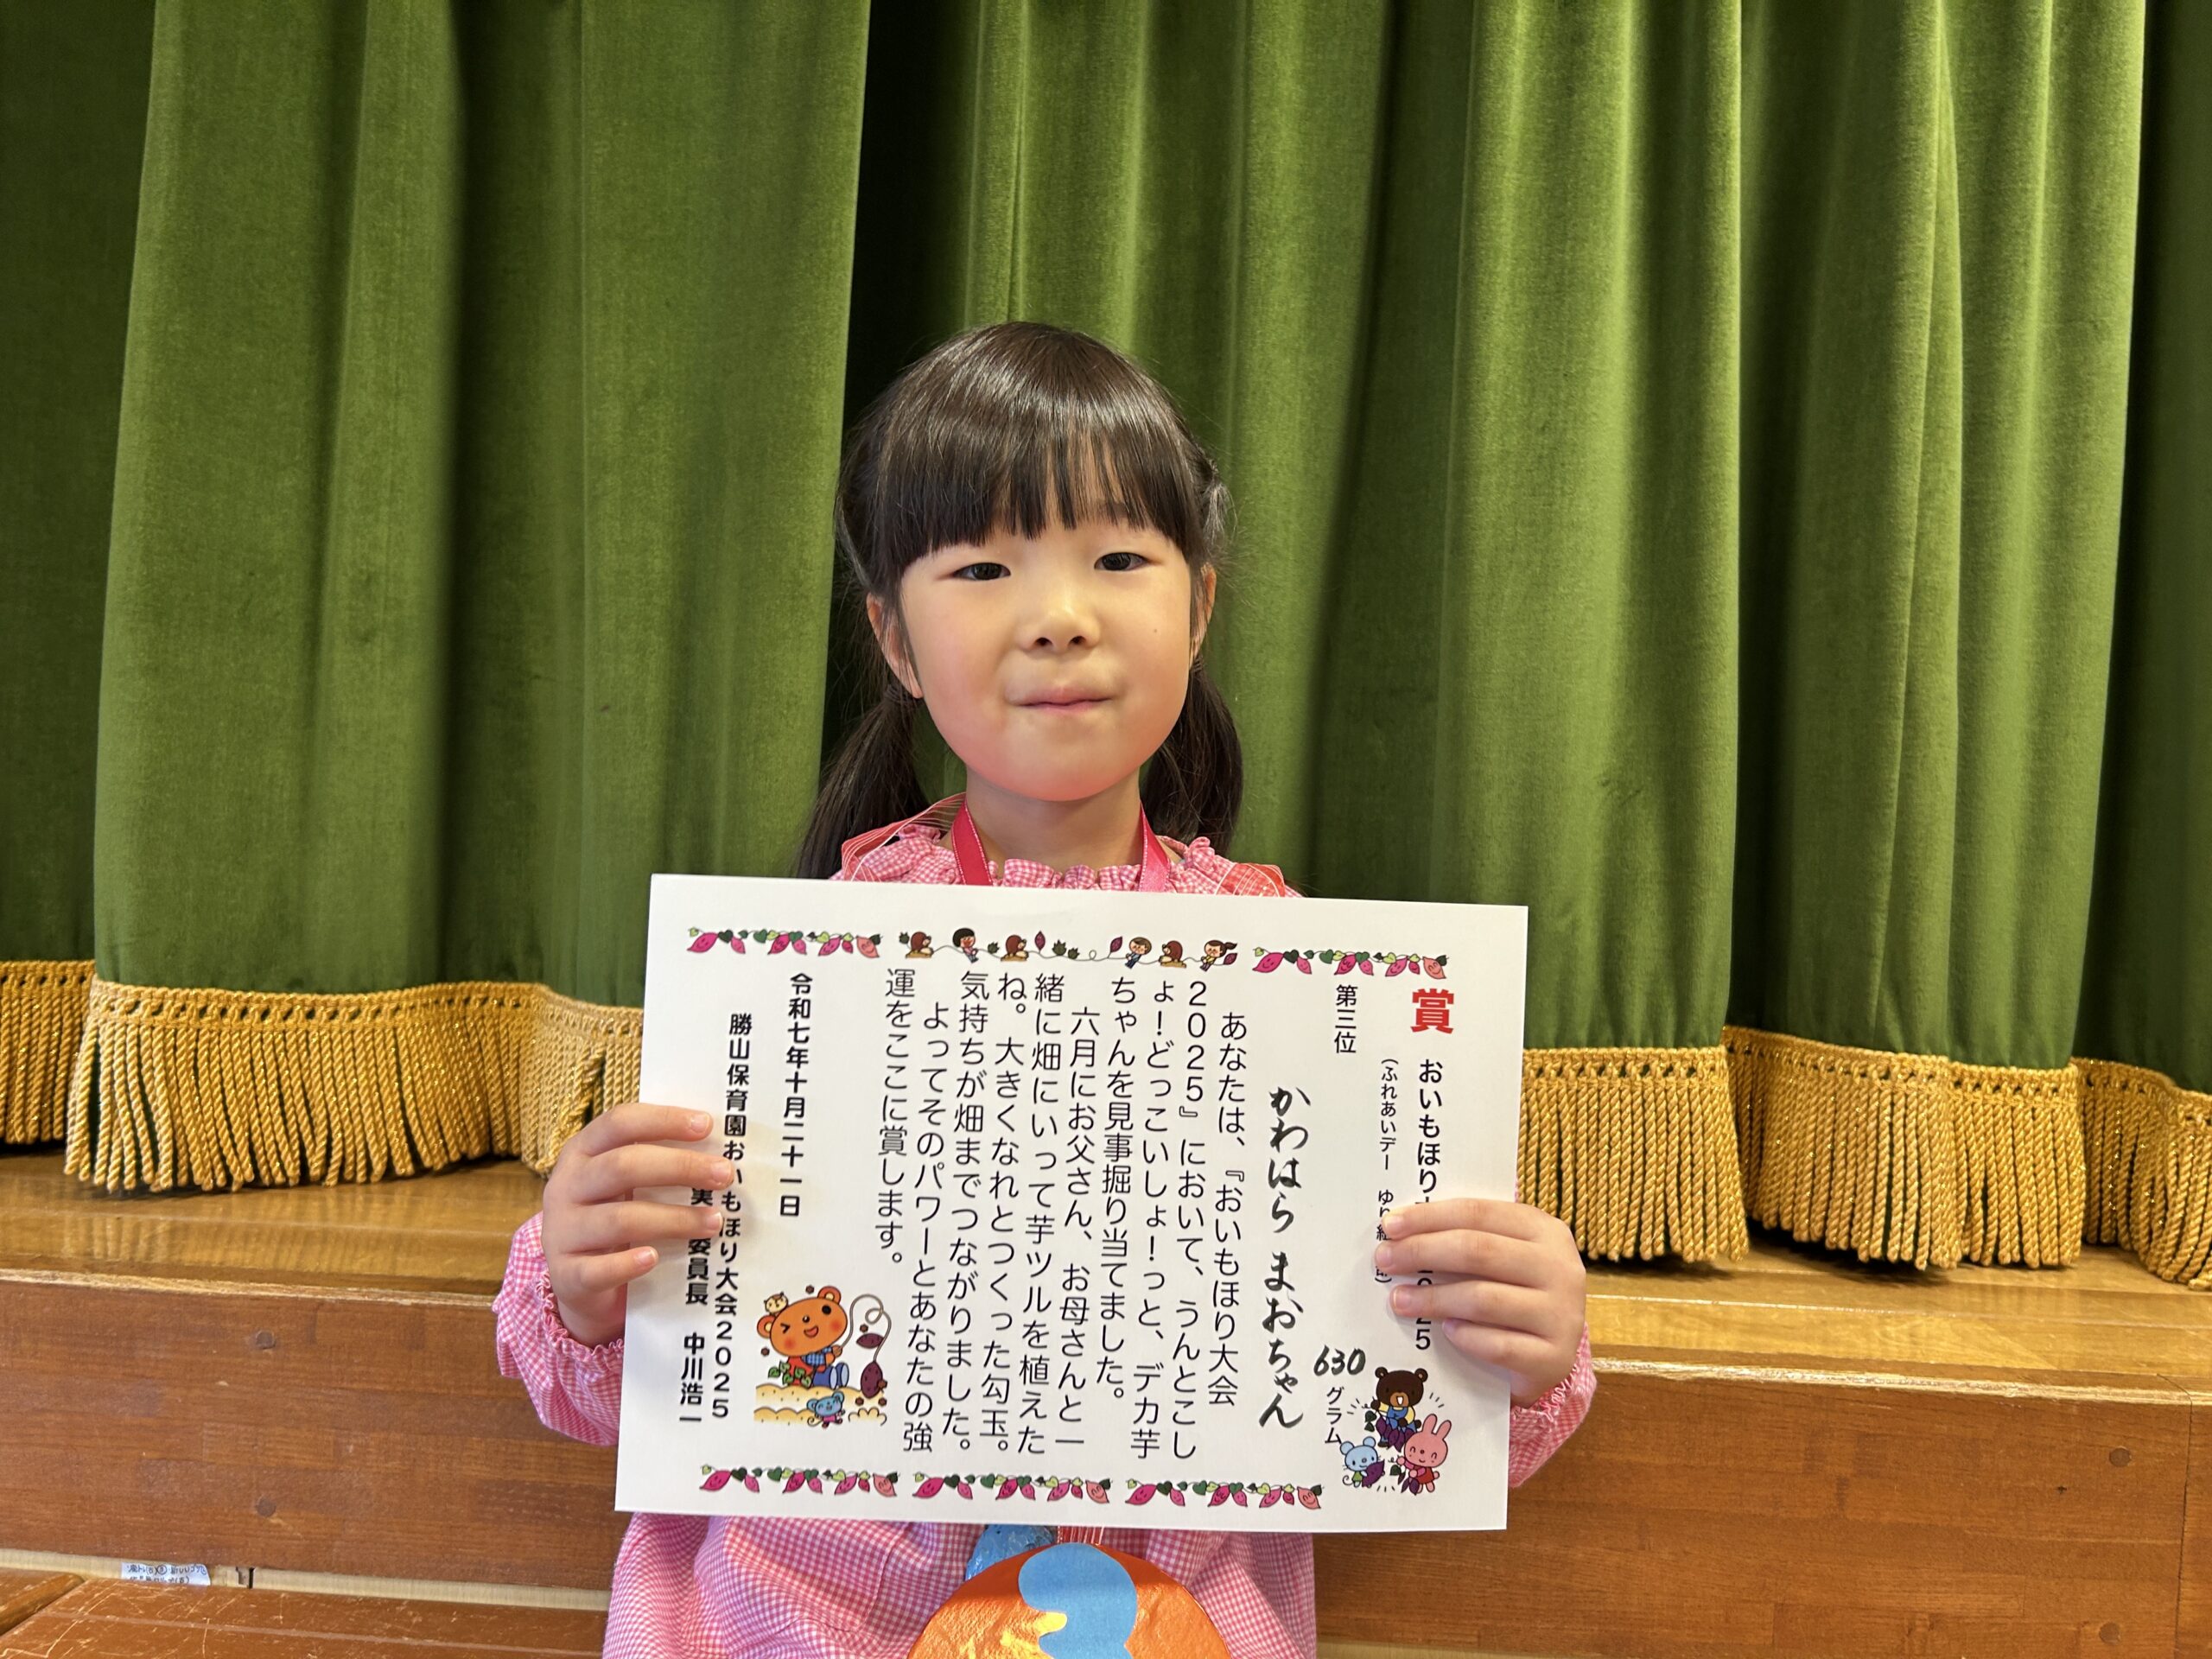 賞 おいもほり
(ふれあいデー ゆり
第三位
630 グラム
かわはら まおちゃん
あなたは、『おいもほり大会
2025』において、うんとこし
ょ!どっこいしょ!っと、デカ芋
ちゃんを見事掘り当てました。
六月にお父さん、お母さんと一
緒に畑にいって芋ツルを植えた
ね。大きくなれとつくった勾玉。
気持ちが畑までつながりました。
よってそのパワーとあなたの強
運をここに賞します。
令和七年十月二十一日
勝山保育園おいもほり大会2025
実 委員長 中川浩一